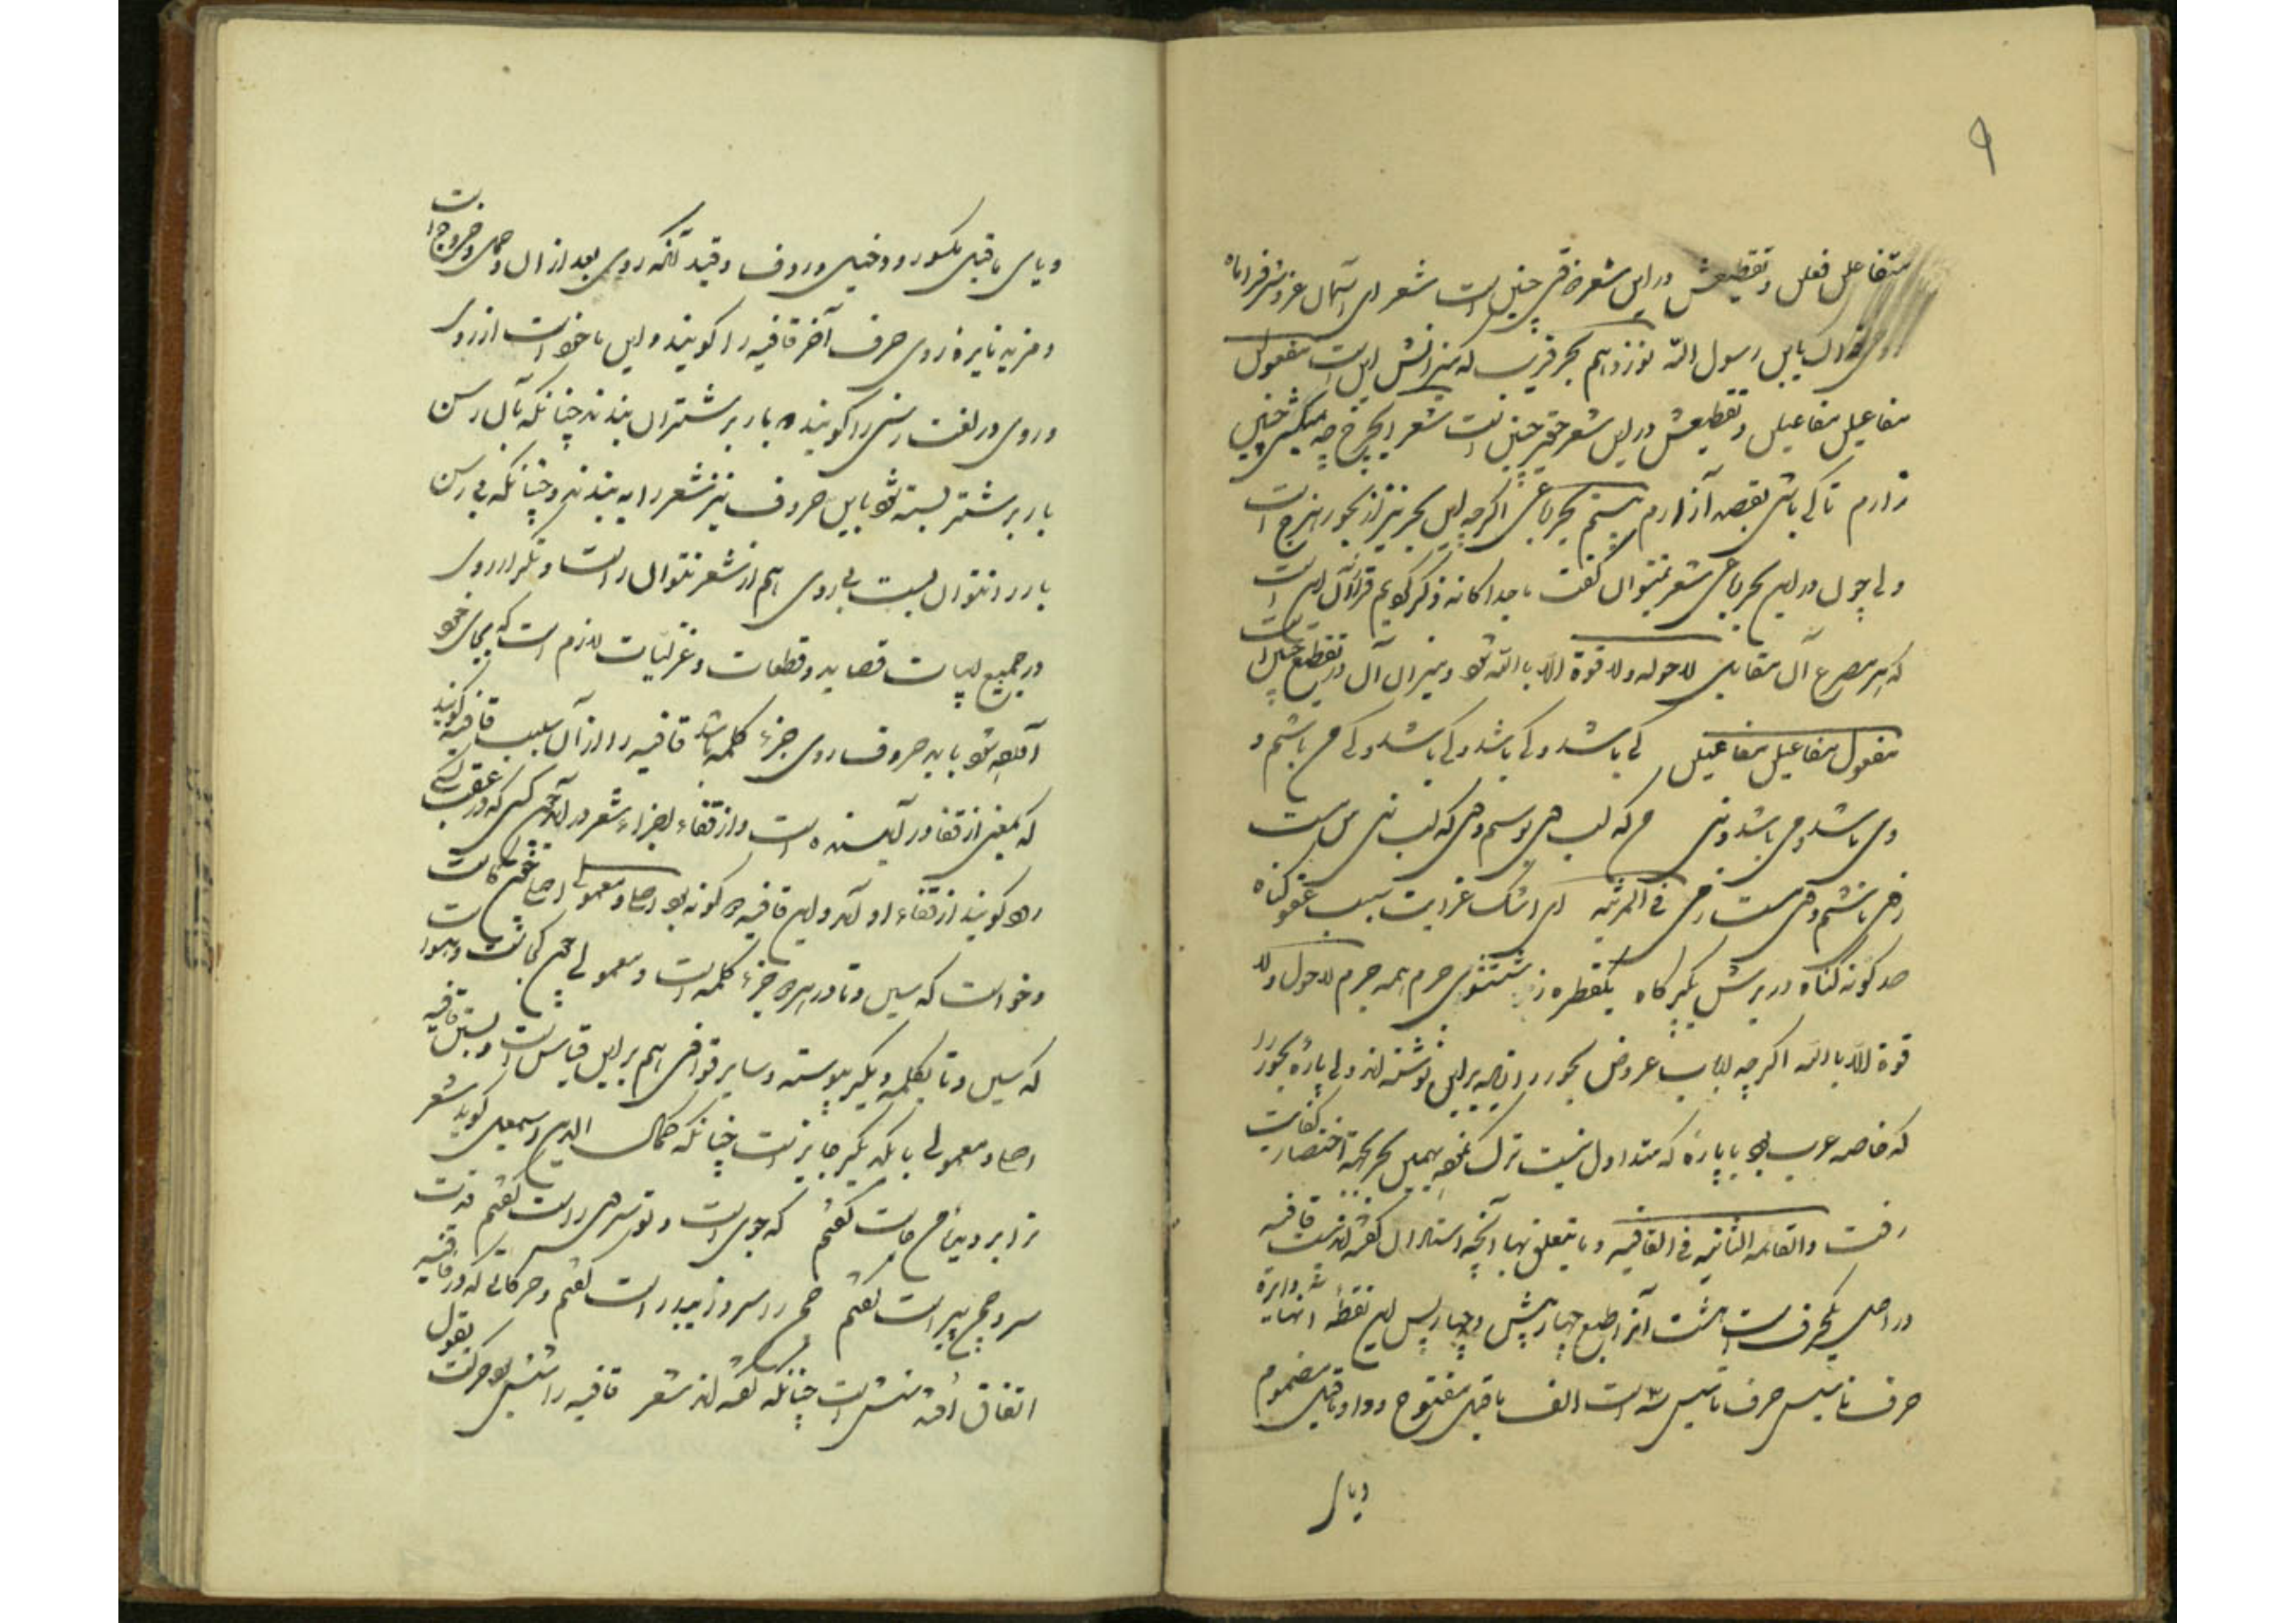 ۹
متفاعلن فعلن و تقطیعش در این شعر چنین است شعر ای آسمان عز و شرف را ماه
یابن رسول الله نوزدهم بحر قریب که میزانش این است مفعول
مفاعیل مفاعیلن و تقطیعش در این شعر حقیر چنین است شعر ای چرخ چه میکنی چنین
زارم تا کی باشی بقصد آزارم بیستم بحر رباعی اگرچه این بحر نیز از بحور هزج است
ولی چون در این بحر رباعی شعر میتوان گفت ما جداگانه ذکر گوییم قرار آن این است
که هر مصرع آن مقابل لا حول ولا قوة الا بالله شود و میزان آن در تقطیع چنین است
مفعول مفاعیل مفاعیلن کی باشد و کی باشد و کی باشد و کی من باشم و
وی باشد و می باشد و نی من که لب وی بوسم وی که لب نی من مست
ز وی باشم و وی مست ز می فی المرثیه ای اشک عزایت سبب عفو گناه
صد گونه گناه در برش یک پر کاه یک قطره ز شستشوی جرم همه جرم لا حول ولا
قوة الا بالله اگرچه ارباب عروض بحور را زیاده بر این نوشته‌اند ولی پاره بحور را
که خاصه عرب بود یا پاره که متداول نیست ترک نموده بهمین بحر بجهة اختصار کفایت
رفت والقاعدة الثانیه فی القافیه و ما یتعلق بها آنچه استادان گفته‌اند نیست قافیه
در اصل یکحرف است هشت آنرا تبع چهار پیش و چهار پس این نقطه آنها دایره
حرف تأسیس حرف تأسیس سه است الف ماقبل مفتوح و واو ماقبل مضموم
ویای
ویای ماقبل مکسور و دخیل و ردف و قید آنگه روی بعد از آن وصل و خروج است
و مزید نایره ز روی حرف آخر قافیه را گویند و این ماخوذ است از روی
و روی در لغت رسنی را گویند که بار بر شتران بندند چنانکه بآن رسن
بار بر شتر بسته شود باین حروف نیز شعر را به بندند و چنانکه بی رسن
بار را نتوان بست بی روی هم از شعر نتوان راست و تکرار روی
در جمیع ابیات قصاید و قطعات و غزلیات لازم است که بجای خود
آورده شود باید حروف روی جزء کلمه باشد قافیه را از آن سبب قافیه گویند
که بمعنی از قفا در آینده است و از قفاء اجزاء شعر در آید چون کسی که در عقب کسی
رود گویند از قفاء او آمد و این قافیه دو گونه بود اصلی و معمولی اصلی چون کاست
و خواست که سین و تا در هر دو جزء کلمه است و معمولی چون کجاست و هموراست
که سین و تا بکلمه دیگر پیوسته و سایر قوافی هم بر این قیاس است و بستن قافیه
اصلی و معمولی با یکدیگر جایز است چنانکه کمال الدین اسمعیل گوید شعر
ترا بر دیده من جاست گفتم که جوی است و تو سروی راست گفتم قدت
سرو چمن پیراست گفتم چمن را سرو زیبد راست گفتم و حرکاتی که در قافیه
اتفاق افتد شش است چنانکه گفته‌اند شعر قافیه را شش بود حرکت بقول